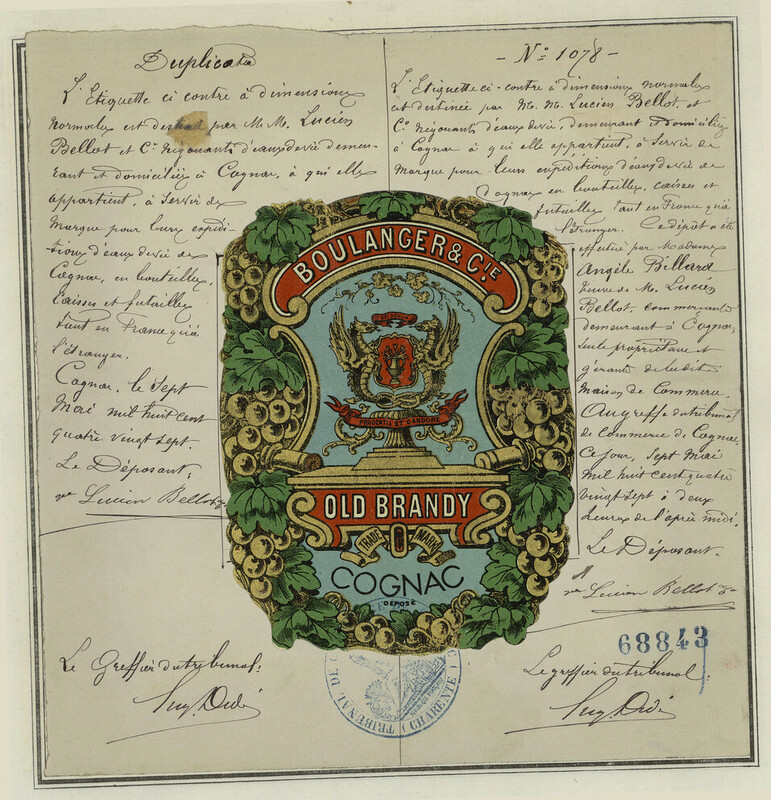 Duplicata
L'Etiquette ci contre à dimensions
normales est destinée par M.M. Lucien
Bellot et Cie Négociants d'eaux de vie demeu-
rant et domiciliés à Cognac, à qui elle
appartient, à servir de
marque pour leurs expédi-
tions d'eaux de vie de
Cognac, en bouteilles,
caisses et futailles
tant en France qu'à
l'étranger.
Cognac, le sept
Mai mil huit cent
quatre vingt sept.
Le Déposant,
ve Lucien Bellot
Le Greffier du tribunal.
- No 1078 -
L'Etiquette ci-contre à dimensions normales
est destinée par M.M. Lucien Bellot et
Cie Négociants d'eaux de vie, demeurant et domiciliés
à Cognac à qui elle appartient, à servir de
marque pour leurs expéditions d'eaux de vie de
Cognac en bouteilles, caisses et
futailles tant en France qu'à
l'étranger. Ce dépôt a été
effectué par Madame
Angèle Billard
veuve de M. Lucien
Bellot, commerçante
demeurant à Cognac,
seule propriétaire et
gérante de la dite
Maison de Commerce.
Au greffe du tribunal
de commerce de Cognac,
ce jour, sept Mai
mil huit cent quatre
vingt sept à deux
heures de l'après midi.
Le Déposant.
ve Lucien Bellot
68843
Le greffier du tribunal.
BOULANGER & CIE
PRUDENTIA ET CANDORE
OLD BRANDY
TRADE MARK
COGNAC
DÉPOSÉ
TRIBUNAL DE
(CHARENTE)